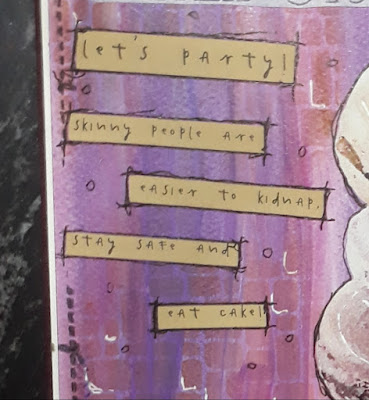 let's party!
skinny people are
easier to kidnap.
stay safe and
eat cake!